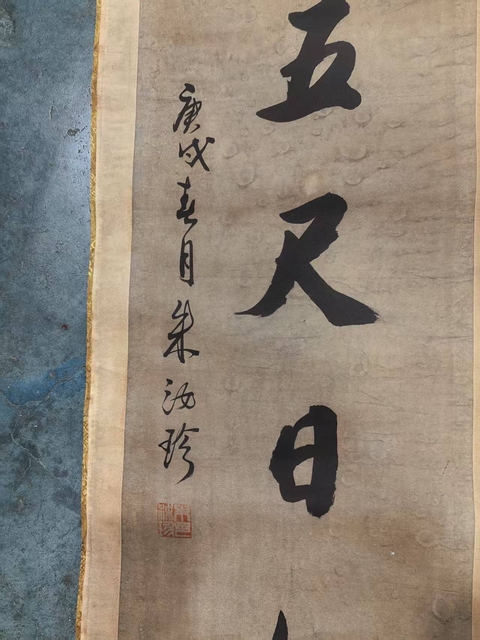 五尺日
庚戌春月朱汝珍